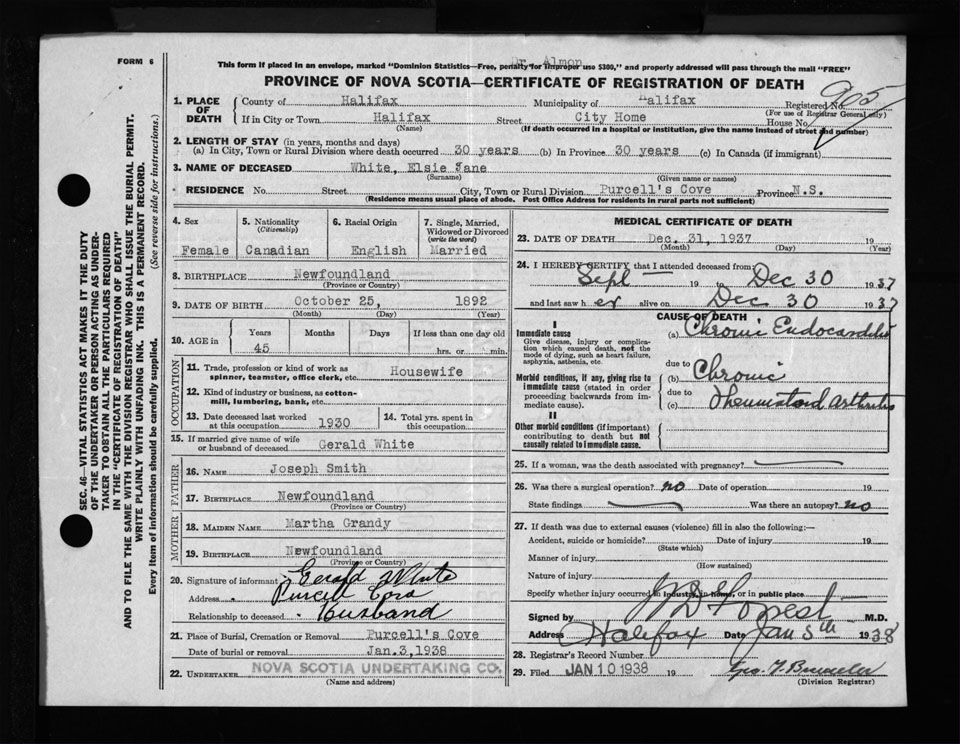 FORM 6
Dr. Almon
This form if placed in an envelope, marked "Dominion Statistics—Free, penalty for improper use $300," and properly addressed will pass through the mail "FREE"
PROVINCE OF NOVA SCOTIA—CERTIFICATE OF REGISTRATION OF DEATH
905
1. PLACE OF DEATH
County of Halifax Municipality of Halifax Registered No.
(For use of Registrar General only)
If in City or Town Halifax Street City Home House No.
(Name) (If death occurred in a hospital or institution, give the name instead of street and number)
2. LENGTH OF STAY (in years, months and days)
(a) In City, Town or Rural Division where death occurred 30 years (b) In Province 30 years (c) In Canada (if immigrant)
3. NAME OF DECEASED White, Elsie Jane
(Surname) (Given name or names)
RESIDENCE No. Street City, Town or Rural Division Purcell's Cove Province N.S.
(Residence means usual place of abode. Post Office Address for residents in rural parts not sufficient)
4. Sex Female
5. Nationality (Citizenship) Canadian
6. Racial Origin English
7. Single, Married, Widowed or Divorced (write the word) Married
8. BIRTHPLACE Newfoundland
(Province or Country)
9. DATE OF BIRTH October 25, 1892
(Month) (Day) (Year)
10. AGE in Years Months Days If less than one day old
45 hrs. or min.
OCCUPATION
11. Trade, profession or kind of work as spinner, teamster, office clerk, etc. Housewife
12. Kind of industry or business, as cotton-mill, lumbering, bank, etc.
13. Date deceased last worked at this occupation 1930
14. Total yrs. spent in this occupation
15. If married give name of wife or husband of deceased Gerald White
FATHER
16. NAME Joseph Smith
17. BIRTHPLACE Newfoundland
(Province or Country)
MOTHER
18. MAIDEN NAME Martha Grandy
19. BIRTHPLACE Newfoundland
(Province or Country)
20. Signature of informant Gerald White
Address Purcell Cova
Relationship to deceased Husband
21. Place of Burial, Cremation or Removal Purcell's Cove
Date of burial or removal Jan.3,1938
22. UNDERTAKER NOVA SCOTIA UNDERTAKING CO.
(Name and address)
MEDICAL CERTIFICATE OF DEATH
23. DATE OF DEATH Dec. 31, 1937 19
(Month) (Day) (Year)
24. I HEREBY CERTIFY that I attended deceased from
Sept 19 to Dec 30 1937
and last saw her alive on Dec 30 1937
CAUSE OF DEATH
I
Immediate cause
Give disease, injury or complication which caused death, not the mode of dying, such as heart failure, asphyxia, asthenia, etc.
(a) Chronic Endocarditis
due to
Morbid conditions, if any, giving rise to immediate cause (stated in order proceeding backwards from immediate cause).
(b) Chronic
due to
(c) Rheumatoid arthritis
II
Other morbid conditions (if important) contributing to death but not causally related to immediate cause.
25. If a woman, was the death associated with pregnancy?
26. Was there a surgical operation? no Date of operation 19
State findings Was there an autopsy? no
27. If death was due to external causes (violence) fill in also the following:—
Accident, suicide or homicide? Date of injury 19
(State which)
Manner of injury
(How sustained)
Nature of injury
Specify whether injury occurred in industry, in home, or in public place
Signed by J B Forrest M.D.
Address Halifax Date Jan 5th 1938
28. Registrar's Record Number
29. Filed JAN 10 1938
(Division Registrar)
SEC. 46—VITAL STATISTICS ACT MAKES IT THE DUTY
OF THE UNDERTAKER OR PERSON ACTING AS UNDER-
TAKER TO OBTAIN ALL THE PARTICULARS REQUIRED
IN THE "CERTIFICATE OF REGISTRATION OF DEATH"
AND TO FILE THE SAME WITH THE DIVISION REGISTRAR WHO SHALL ISSUE THE BURIAL PERMIT.
WRITE PLAINLY WITH UNFADING INK. THIS IS A PERMANENT RECORD.
Every item of information should be carefully supplied. (See reverse side for instructions.)